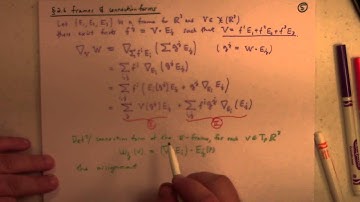 §2.6 frames & connection forms ⑤
Let {E₁, E₂, E₃} is a frame for ℝ³ and V ∈ 𝔛(ℝ³)
then exist fⁱ = V·Eᵢ such that V = f¹E₁ + f²E₂ + f³E₃
∇_V W = ∇_{Σᵢ fⁱEᵢ} (Σⱼ gʲ Eⱼ) (gʲ = W·Eⱼ)
= Σᵢ,ⱼ fⁱ ∇_{Eᵢ} (gʲ Eⱼ)
= Σᵢ,ⱼ fⁱ (Eᵢ(gʲ) Eⱼ + gʲ ∇_{Eᵢ} Eⱼ)
= Σⱼ V(gʲ) Eⱼ + Σᵢ,ⱼ fⁱ gʲ ∇_{Eᵢ}(Eⱼ)
① ②
Defⁿ/ connection form of the E-frame, for each v ∈ Tₚℝ³
ωᵢⱼ(v) = (∇ᵥ Eᵢ)·Eⱼ(p)
the assignment